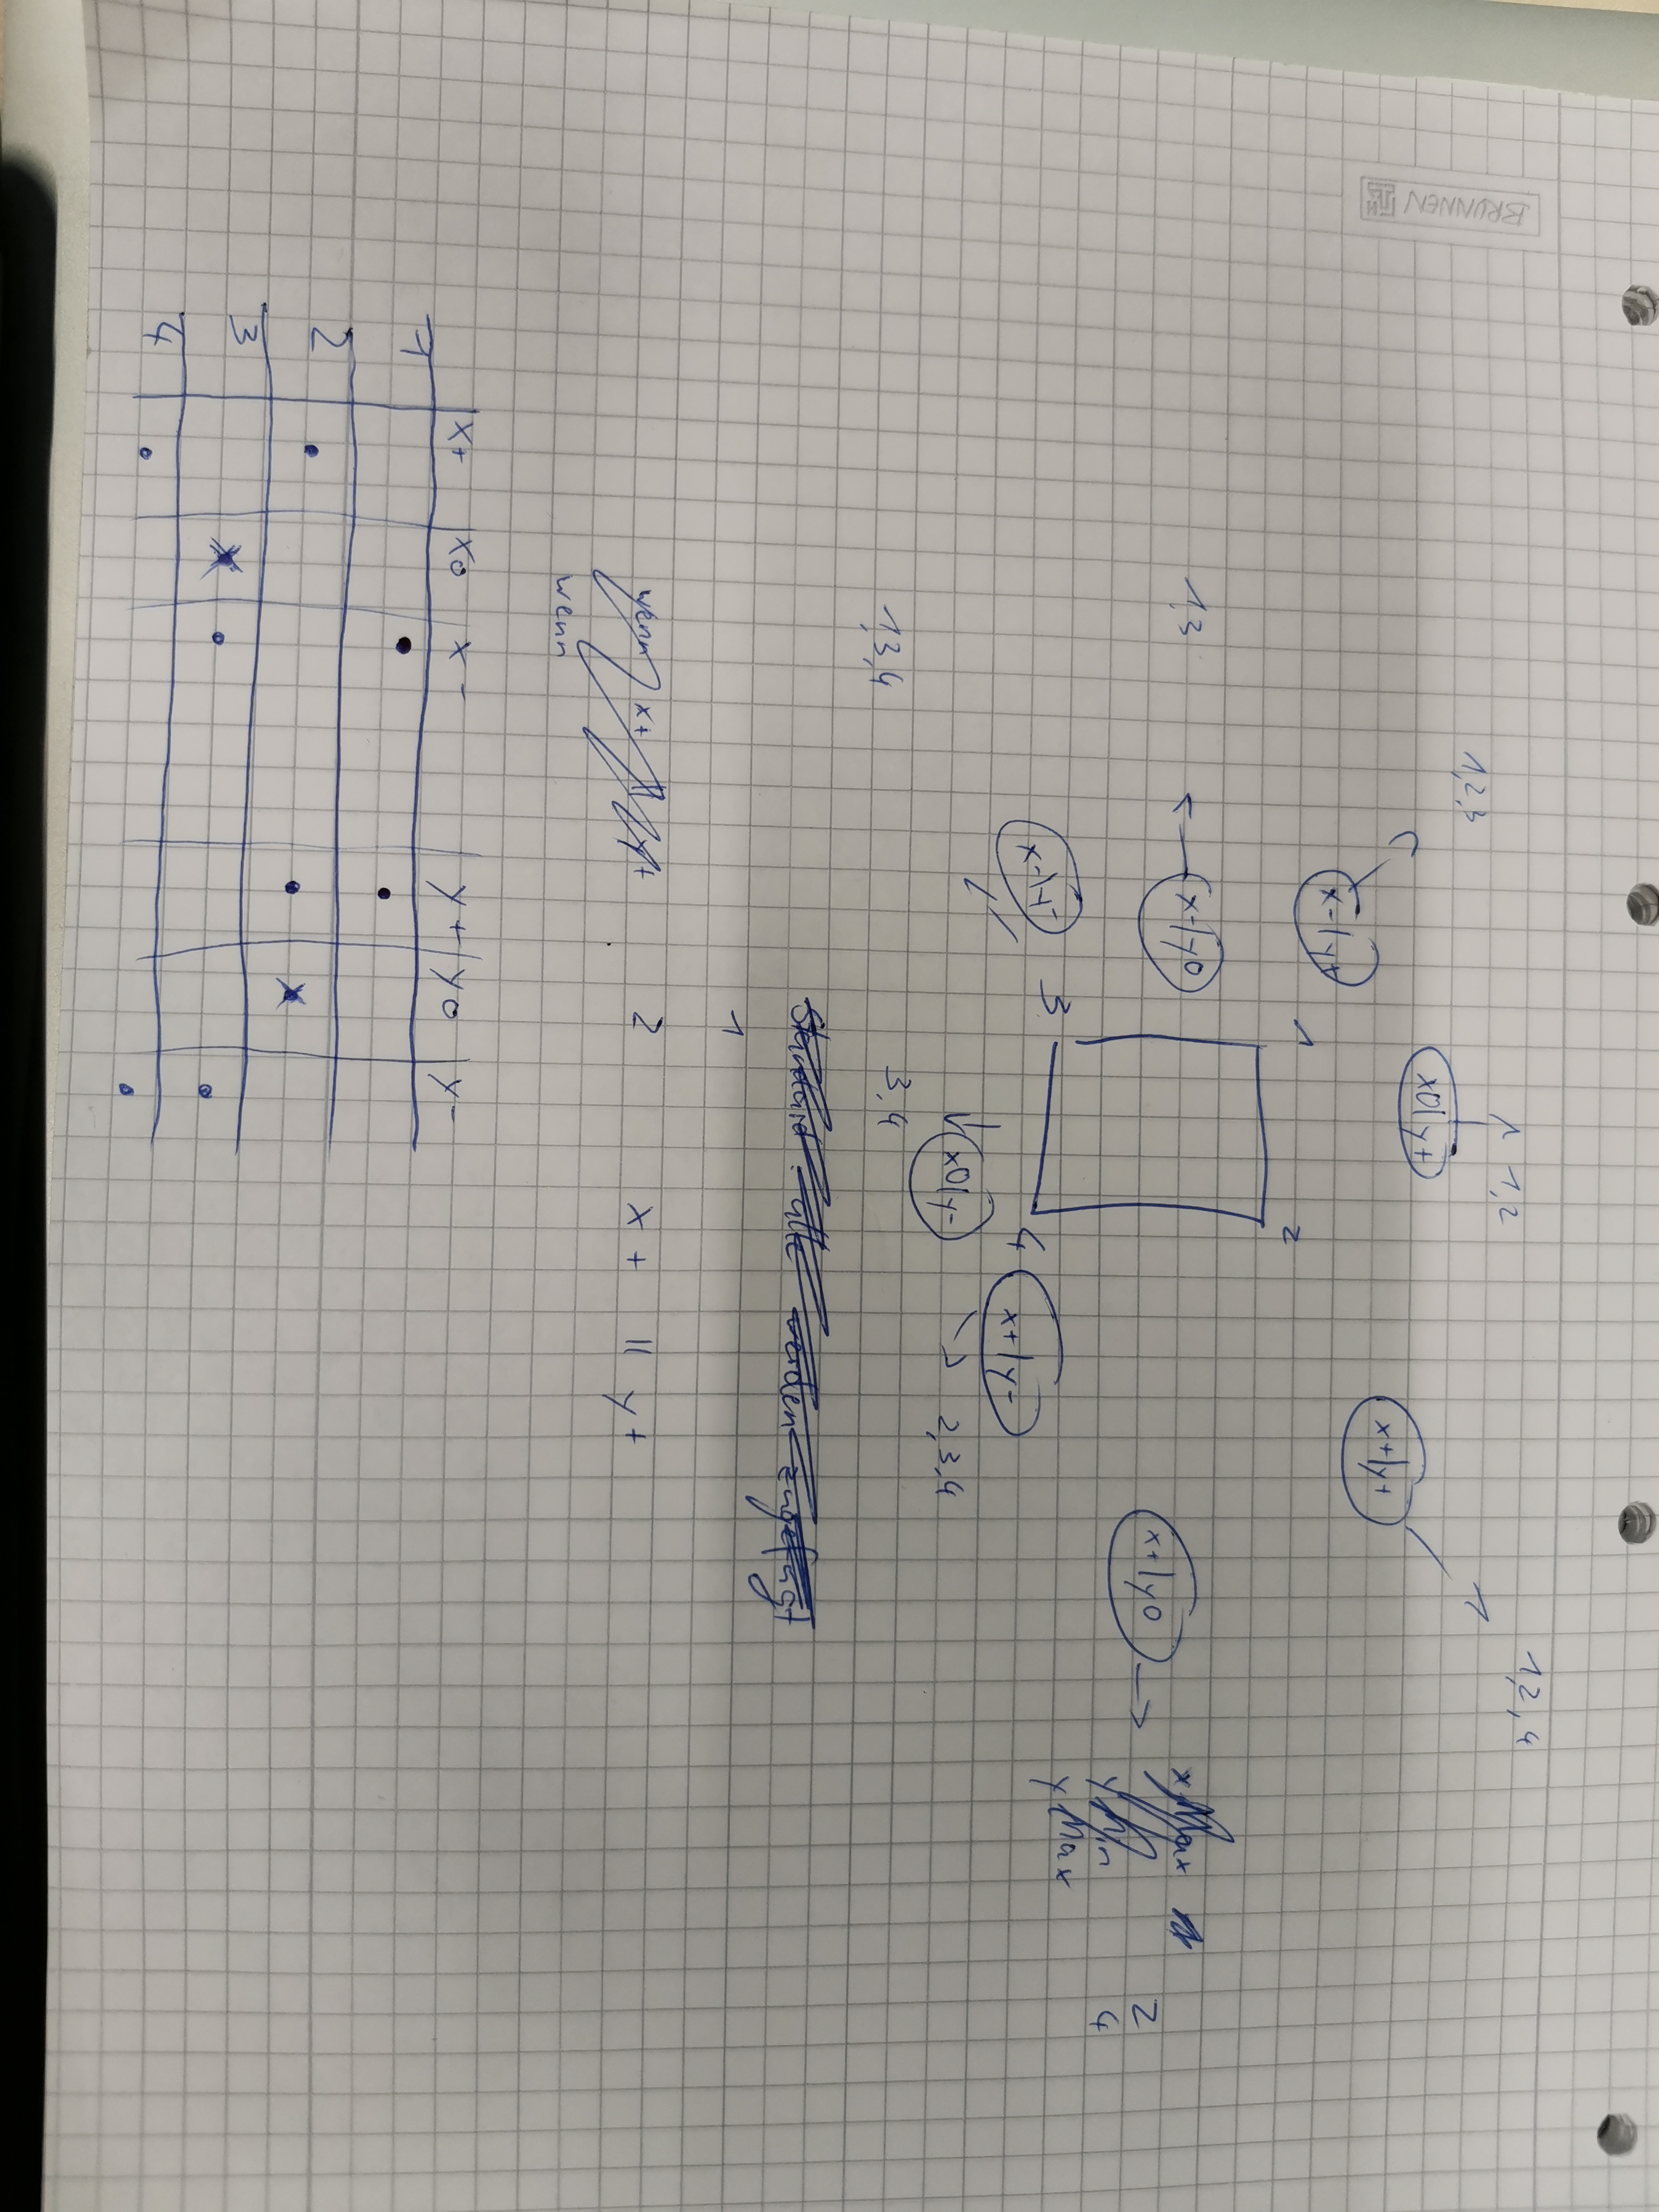 BRUNNEN
1,2,4
1,2
1,2,3
x0|y+
x+|y+
x-|y+
1 2
1,3 x-|y0 x+|y0
x Max
2
y Min 4
y Max
x-|y-
3 4 x+|y-
x0|y- 2,3,4
1,3,4 3,4
Standard: alle werden zugefügt
1
wenn x+ || y+ 2 x+ || y+
wenn
x+ x0 x- y+ y0 y-
1
2
3
4